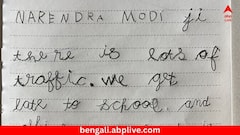 NARENDRA MODI ji
there is lots of
traffic. we get
late to school. and
bengali.abplive.com